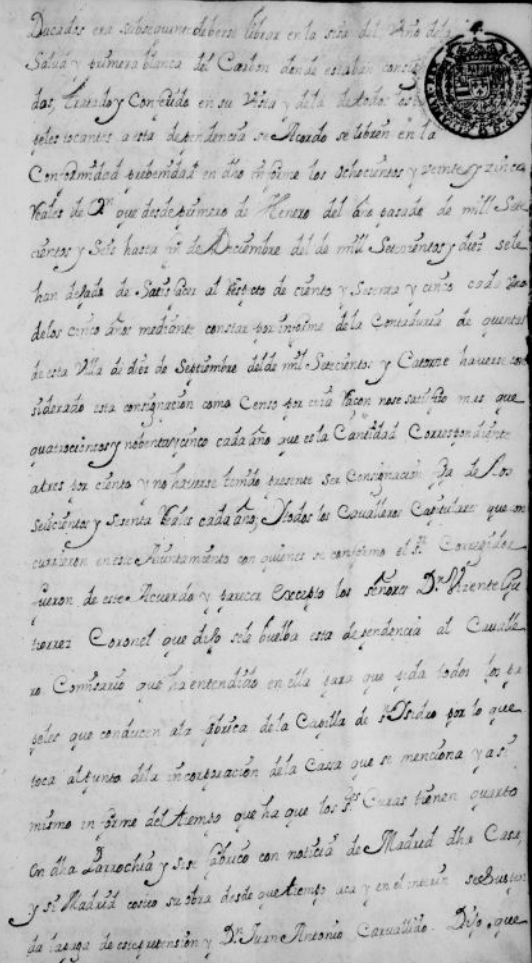 Dacados era subsequente deberse librar en la sisa del Vino de la
Salud y primera blanca del Carbon donde estaban consigna
das, tratado y Conferido en su Vista y de la de todos los pa
peles tocantes a esta dependencia se Acordo se libren en la
Conformidad prebenida en dho informe los ochocientos y veinte y zinco
Reales de Vn que desde primero de Henero del año pasado de mill Sete
cientos y Seis hasta fin de Diciembre del de mill Setecientos y diez se le
han dejado de Satisfacer al Respecto de ciento y Sesenta y cinco cada Uno
de los cinco años mediante constar por informe de la Contaduria de quentas
de esta Villa de diez de Septiembre del de mil Setecientos y Catorze haverse con
siderado esta consignacion como Censo por cuia Racon no se satisfizo mas que
quatrocientos y nobenta y cinco cada año que es la Cantidad Correspondiente
a tres por ciento y no haverse tenido presente ser Consignacion de los
Seiscientos y Sesenta Reales cada año, y todos los Cavalleros Capitulares que con
currieron en este Ayuntamiento con quienes se conformo el Sr. Corregidor
fueron de este Acuerdo y parecer Excepto los señores Dn. Vizente Gu
tierrez Coronel que dijo se le buelba esta dependencia al Cavalle
ro Comisario que ha entendido en ella para que pida todos los pa
peles que conducen a la fabrica de la Capilla de Sn. Isidro por lo que
toca al punto de la incorporacion de la Casa que se menciona y asi
mismo informe del tiempo que ha que los Sres Curas tienen quarto
en dha Parrochia y si se fabrico con noticia de Madrid dha Casa
y si Madrid costeo su obra desde que tiempo aca y en el interin se Suspen
da la paga de esta pretension y Dn. Juan Antonio Carvallido Dijo, que